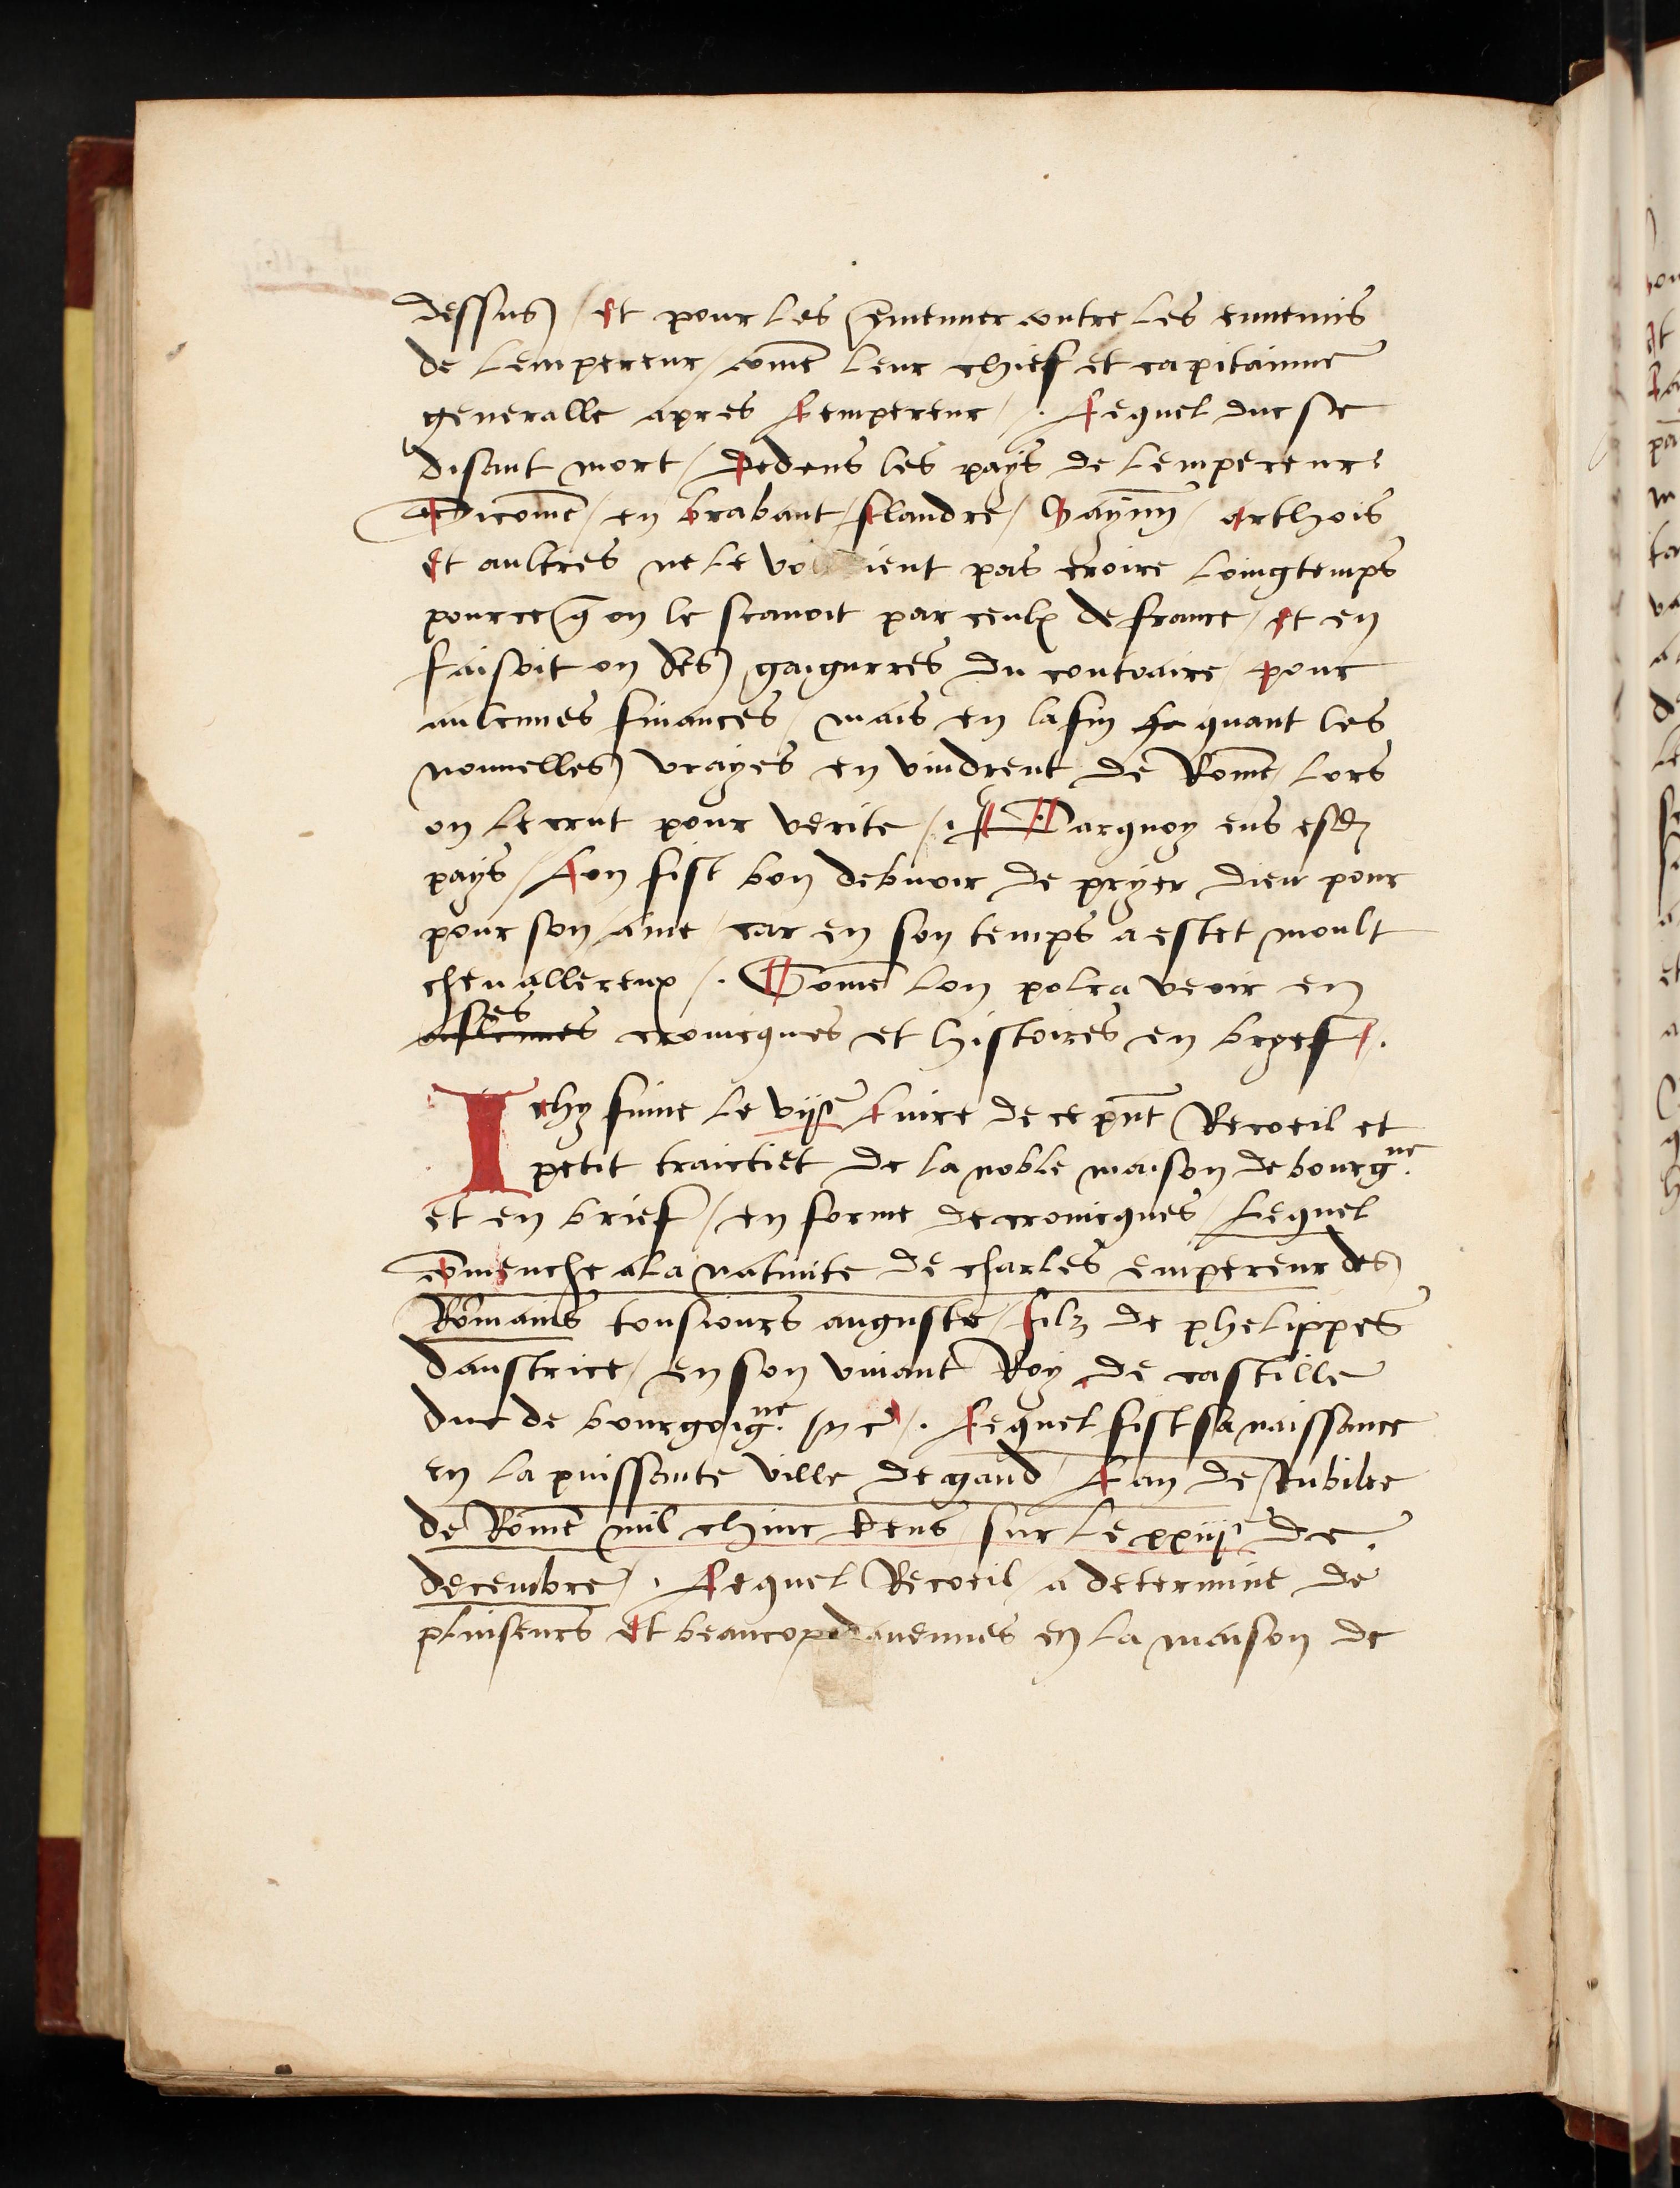 dessus / et pour les emmenner contre les ennemis
de lempereur / come leur chief et capitainne
generalle apres Lempereur / . Lequel duc se
disant mort / Dedens les pays de lempereur
Sicome / en brabant / flandre / haynnau / arthois
et aultres ne le vol ient pas croire loingtemps
pource q on le scavoit par ceulx de france / et en
faisoit on des gaigurres du contraire / pour
aulcunes finances / mais en la fin quant les
nouuelles vrayes en vindrent de Rome / lors
on le crut pour verite / . Parquoy ens esd
pays / Lon fist bon debuoir de pryer dieu pour
pour son ame / car en son temps a estet moult
cheuallereux / . Come lon polra veoir en
ses cronicques et histoires en bryef / .
Ichy finne le vije Liure de ce pnt Recoeil et
petit traictiet de la noble maison de bourgne.
et en brief / en forme de cronicques / Lequel
comenche a la natiuite de charles empereur des
Romains tousiours auguste / filz de phelippes
daustrice / en son viuant Roy de castille
duc de bourgoigne. / . Lequel fist sa naissance
en la puissante ville de gand / Lan de Iubilee
de Rome mil chinc Cens / sur le xxiiije de
decembre / . Lequel Recoeil / a determine de
pluiseurs et beaucop dauennes en la maison de